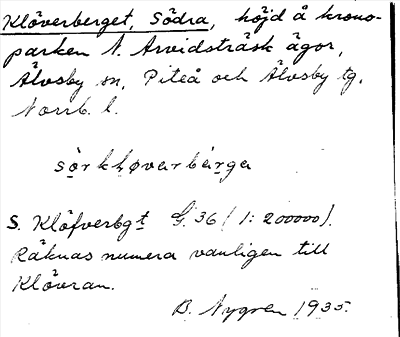 Klöverberget, Södra, höjd å krono-
parken N. Arvidsträsk ägor,
Älvsby sn, Piteå och Älvsby tg,
Norrb. l.
sörkḥøvarbärga
S. Klöfverbgt G. 36 (1: 200000).
Räknas numera vanligen till
Klöveran.
B. Nygren 1935.